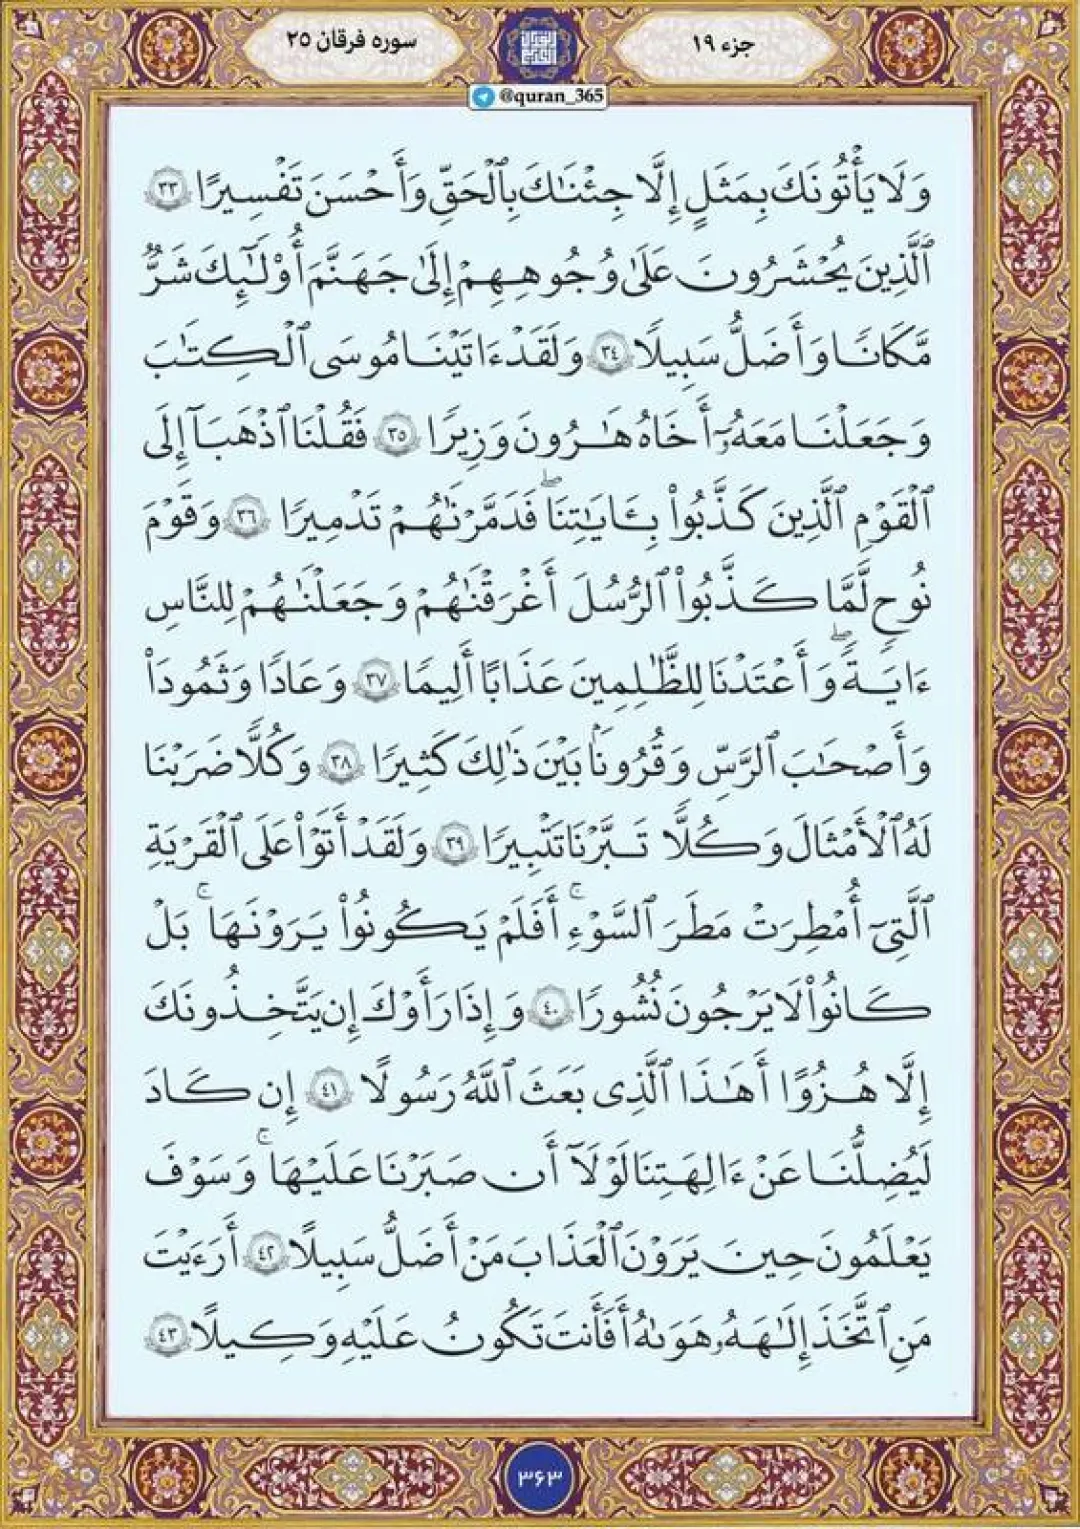 جزء ۱۹
سوره فرقان ۲۵
@quran_365
وَلَا يَأْتُونَكَ بِمَثَلٍ إِلَّا جِئْنَٰكَ بِٱلْحَقِّ وَأَحْسَنَ تَفْسِيرًا ٣٣
ٱلَّذِينَ يُحْشَرُونَ عَلَىٰ وُجُوهِهِمْ إِلَىٰ جَهَنَّمَ أُو۟لَٰٓئِكَ شَرٌّ
مَّكَانًا وَأَضَلُّ سَبِيلًا ٣٤ وَلَقَدْ ءَاتَيْنَا مُوسَى ٱلْكِتَٰبَ
وَجَعَلْنَا مَعَهُۥٓ أَخَاهُ هَٰرُونَ وَزِيرًا ٣٥ فَقُلْنَا ٱذْهَبَآ إِلَى
ٱلْقَوْمِ ٱلَّذِينَ كَذَّبُوا۟ بِـَٔايَٰتِنَاۖ فَدَمَّرْنَٰهُمْ تَدْمِيرًا ٣٦ وَقَوْمَ
نُوحٍ لَّمَّا كَذَّبُوا۟ ٱلرُّسُلَ أَغْرَقْنَٰهُمْ وَجَعَلْنَٰهُمْ لِلنَّاسِ
ءَايَةًۖ وَأَعْتَدْنَا لِلظَّٰلِمِينَ عَذَابًا أَلِيمًا ٣٧ وَعَادًا وَثَمُودَا۟
وَأَصْحَٰبَ ٱلرَّسِّ وَقُرُونًۢا بَيْنَ ذَٰلِكَ كَثِيرًا ٣٨ وَكُلًّا ضَرَبْنَا
لَهُ ٱلْأَمْثَٰلَ وَكُلًّا تَبَّرْنَا تَتْبِيرًا ٣٩ وَلَقَدْ أَتَوْا۟ عَلَى ٱلْقَرْيَةِ
ٱلَّتِىٓ أُمْطِرَتْ مَطَرَ ٱلسَّوْءِۚ أَفَلَمْ يَكُونُوا۟ يَرَوْنَهَاۚ بَلْ
كَانُوا۟ لَا يَرْجُونَ نُشُورًا ٤٠ وَإِذَا رَأَوْكَ إِن يَتَّخِذُونَكَ
إِلَّا هُزُوًا أَهَٰذَا ٱلَّذِى بَعَثَ ٱللَّهُ رَسُولًا ٤١ إِن كَادَ
لَيُضِلُّنَا عَنْ ءَالِهَتِنَا لَوْلَآ أَن صَبَرْنَا عَلَيْهَاۚ وَسَوْفَ
يَعْلَمُونَ حِينَ يَرَوْنَ ٱلْعَذَابَ مَنْ أَضَلُّ سَبِيلًا ٤٢ أَرَءَيْتَ
مَنِ ٱتَّخَذَ إِلَٰهَهُۥ هَوَىٰهُ أَفَأَنتَ تَكُونُ عَلَيْهِ وَكِيلًا ٤٣
۳۶۳